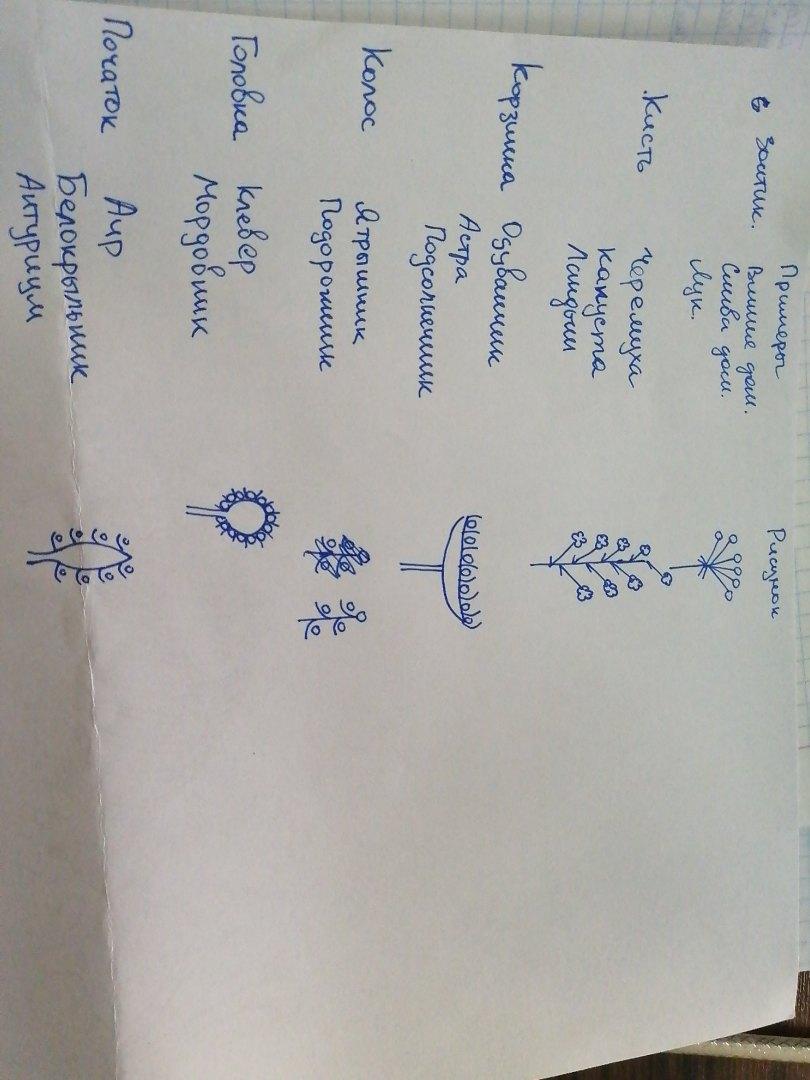 Примеры Рисунок
Зонтик. Вишня дом.
Слива дом.
Лук.
Кисть Черемуха
Капуста
Ландыш
Корзинка Одуванчик
Астра
Подсолнечник
Колос Ятрышник
Подорожник
Головка Клевер
Мордовник
Початок Аир
Белокрыльник
Антуриум